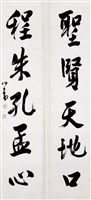 聖賢天地口
程朱孔孟心